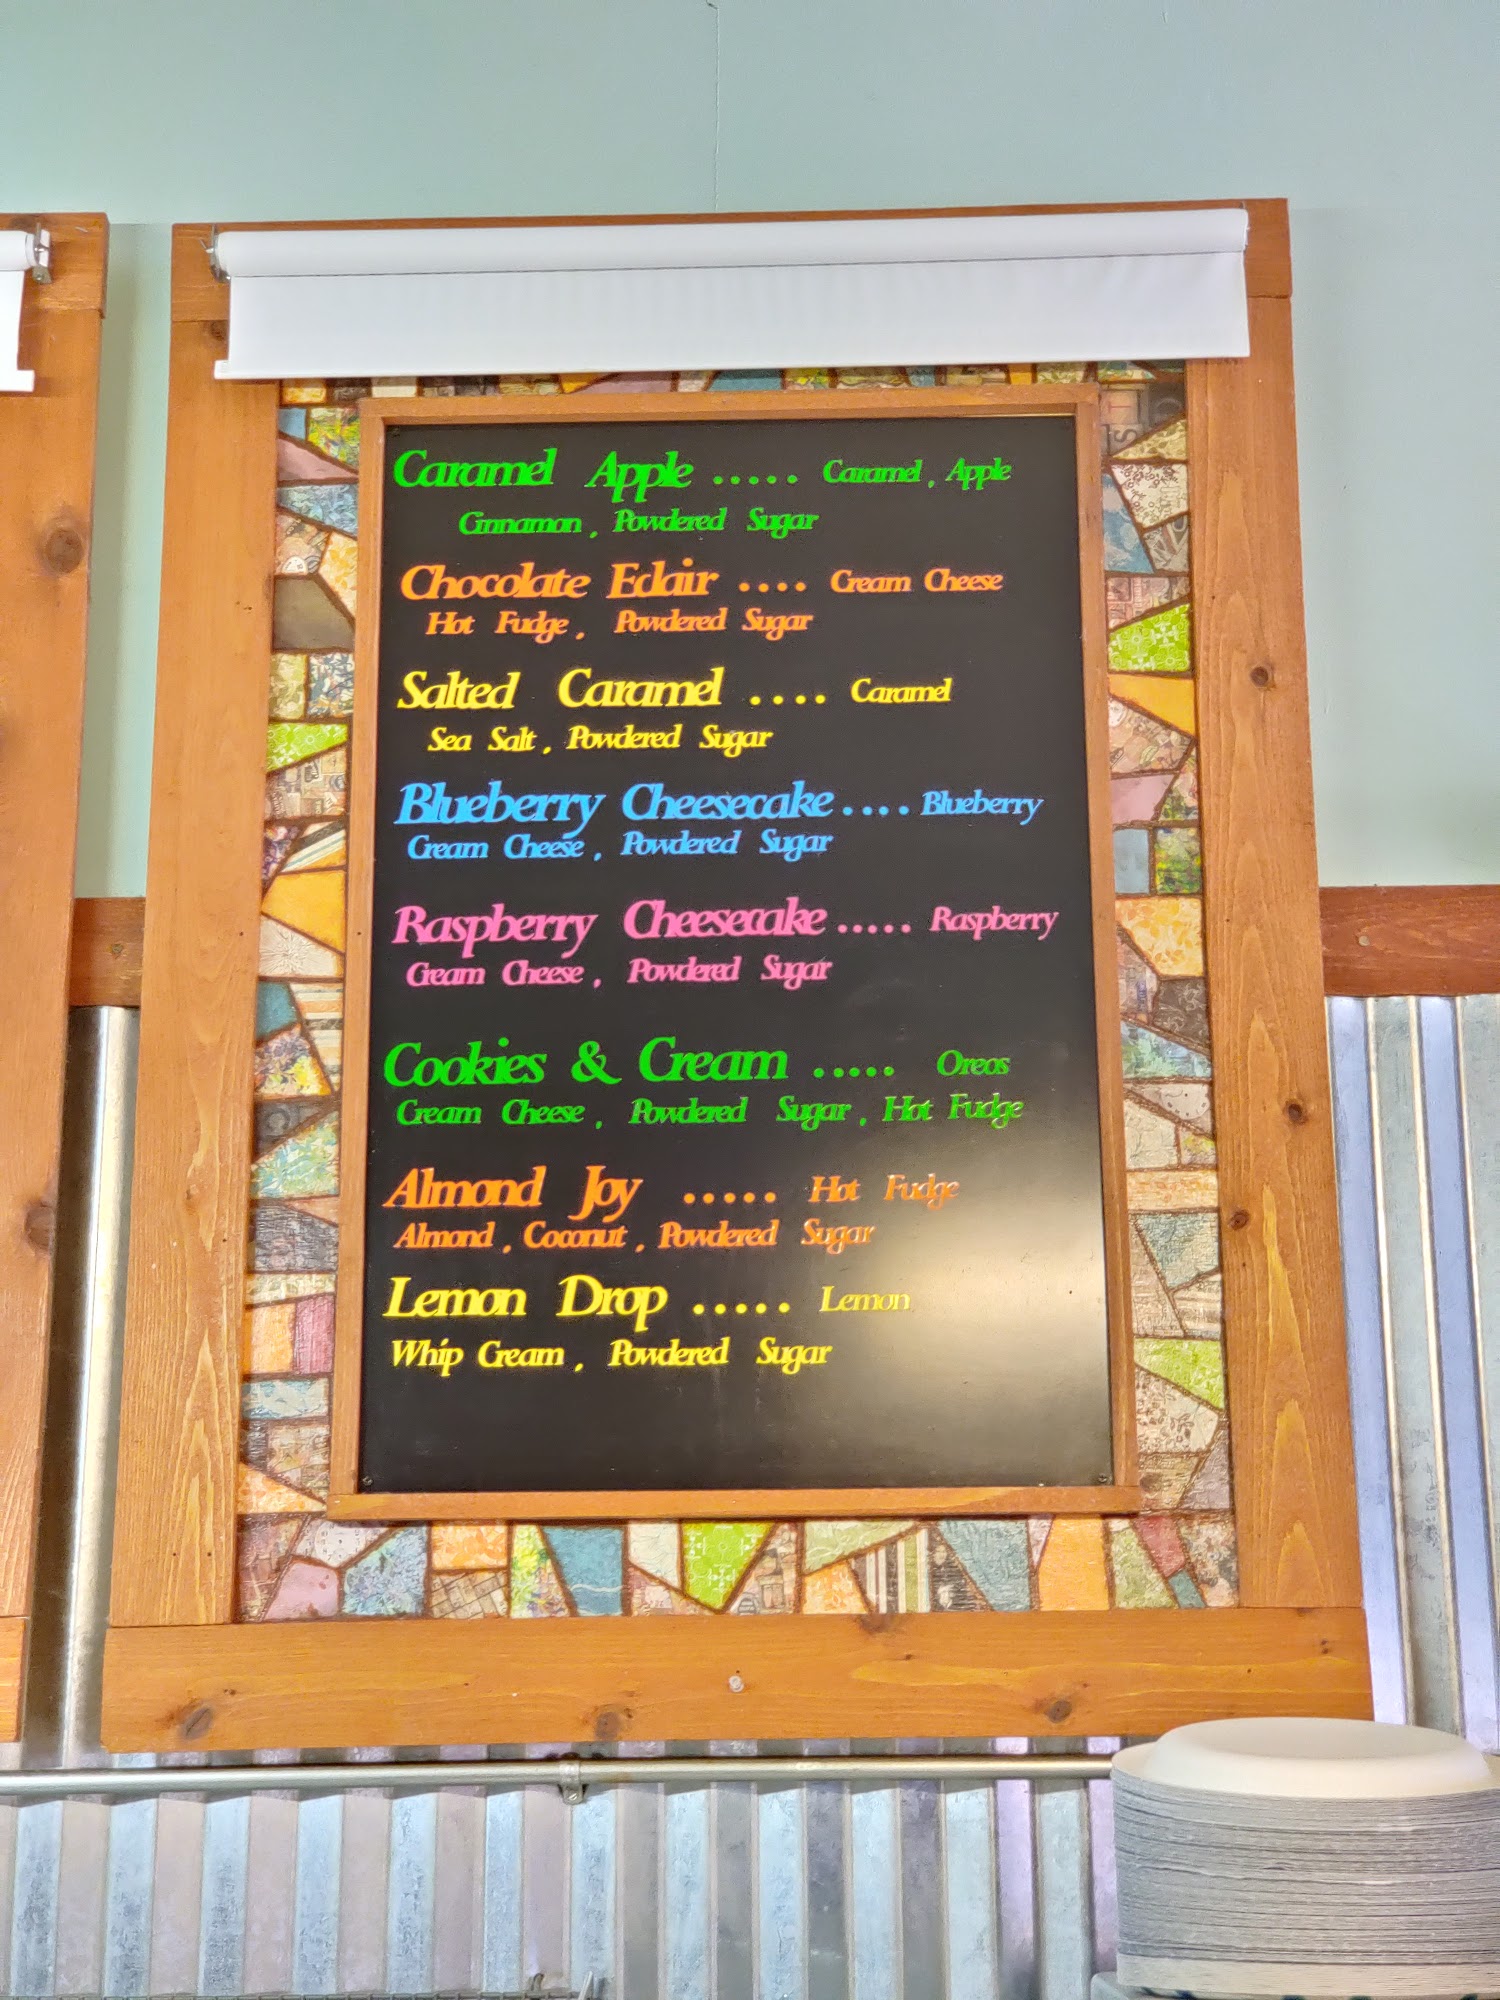 Caramel Apple ..... Caramel, Apple
Cinnamon, Powdered Sugar
Chocolate Eclair .... Cream Cheese
Hot Fudge, Powdered Sugar
Salted Caramel .... Caramel
Sea Salt, Powdered Sugar
Blueberry Cheesecake .... Blueberry
Cream Cheese, Powdered Sugar
Raspberry Cheesecake ..... Raspberry
Cream Cheese, Powdered Sugar
Cookies & Cream ..... Oreos
Cream Cheese, Powdered Sugar, Hot Fudge
Almond Joy ..... Hot Fudge
Almond, Coconut, Powdered Sugar
Lemon Drop ..... Lemon
Whip Cream, Powdered Sugar